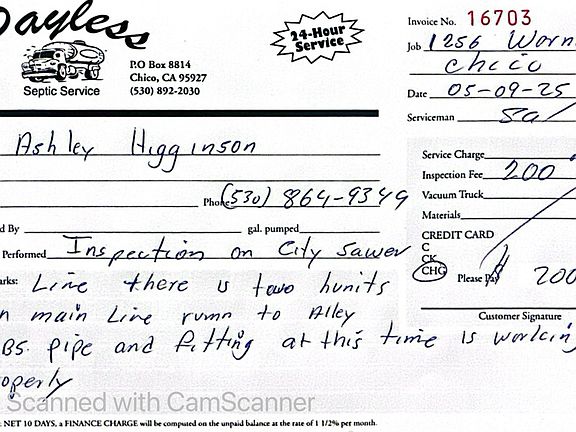 Dayless
Septic Service
P.O Box 8814
Chico, CA 95927
(530) 892-2030
24-Hour
Service
Invoice No. 16703
Job 1256 Worn
Chico
Date 05-09-25
Serviceman Sal
Ashley Higginson
Phone (530) 864-9349
d By gal. pumped
Performed Inspection on City Sawer
arks: Line there is two hunits
n main Line runn to Alley
BS. pipe and fitting at this time is working
operly
Service Charge
Inspection Fee 200
Vacuum Truck
Materials
CREDIT CARD
C
CK
CHG Please Pay $ 200
Customer Signature
Scanned with CamScanner
: NET 10 DAYS, a FINANCE CHARGE will be computed on the unpaid balance at the rate of 1 1/2% per month.